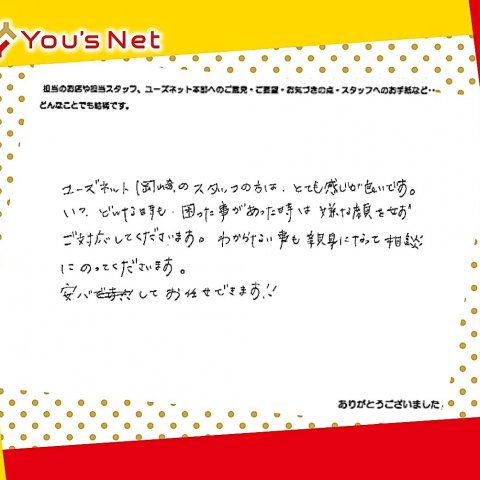 You's Net
担当のお店や担当スタッフ、ユーズネット本部へのご意見・ご要望・お気づきの点・スタッフへのお手紙など…
どんなことでも結構です。
ユーズネット岡崎のスタッフの方は、とても感じが良いです。
いつ、どんな時も、困った事があった時は嫌な顔をせず
ご対応してくださいます。わからない事も親身になって相談
にのってくださいます。
安心してお任せできます!!
ありがとうございました